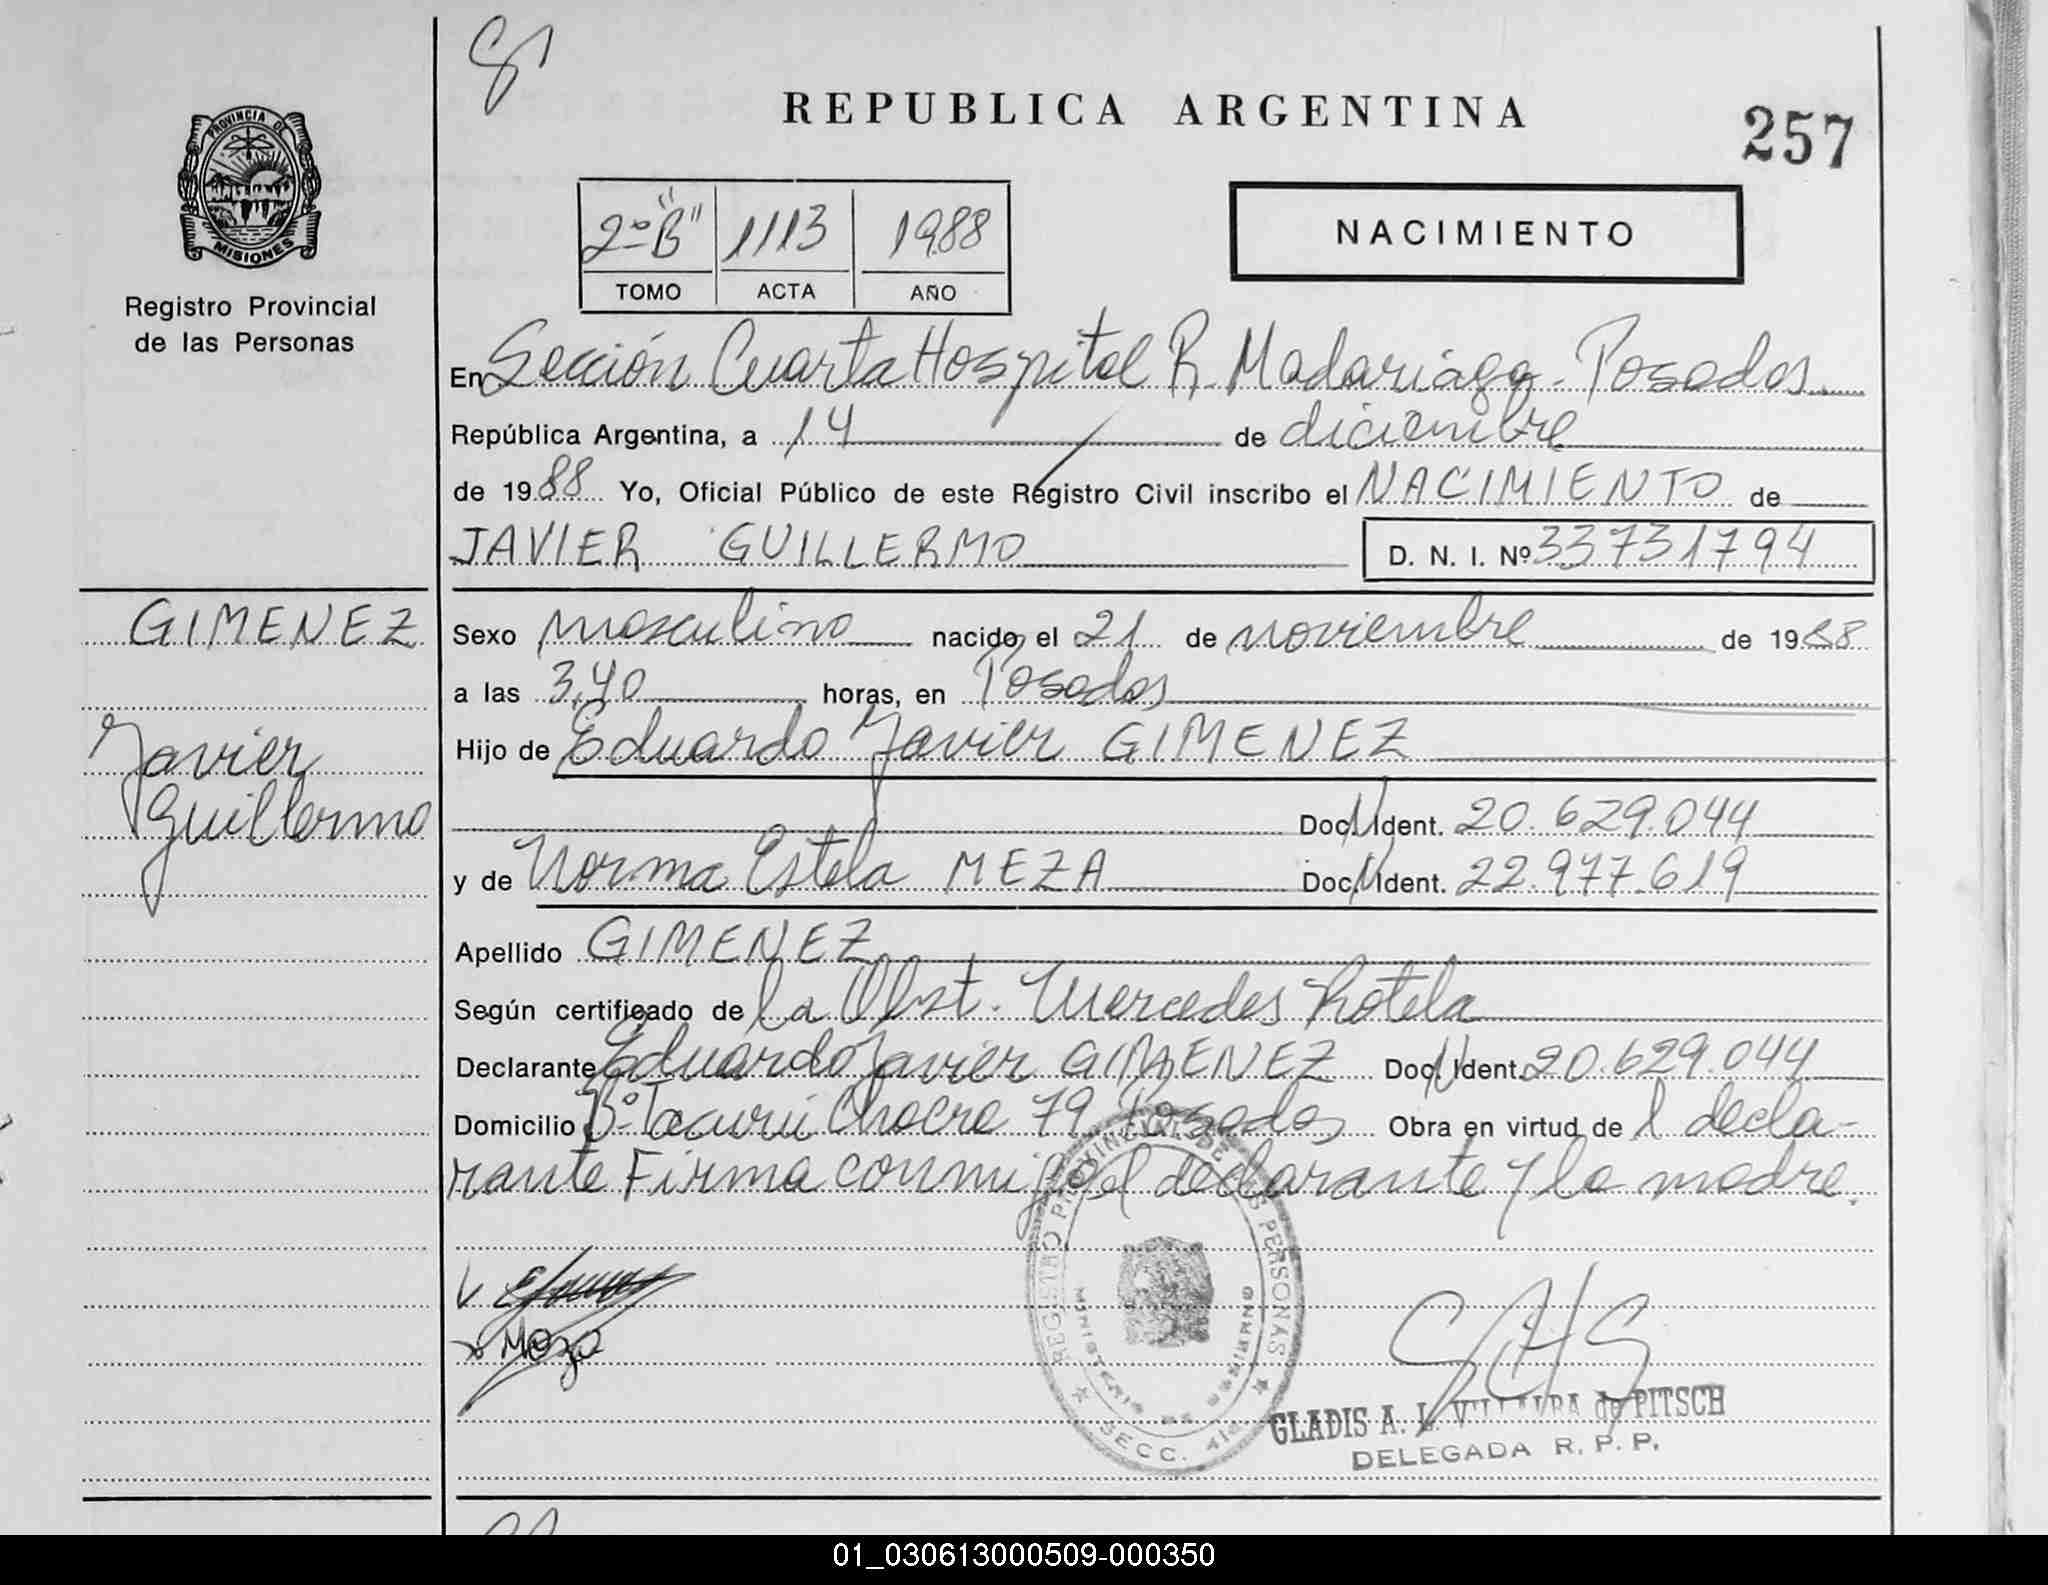 REPUBLICA ARGENTINA
257
PROVINCIA DE
MISIONES
Registro Provincial
de las Personas
2º "B" 1113 1988
TOMO ACTA AÑO
NACIMIENTO
En Sección Cuarta Hospital R. Madariaga - Posadas
República Argentina, a 14 de diciembre
de 1988 Yo, Oficial Público de este Registro Civil inscribo el NACIMIENTO de
JAVIER GUILLERMO D. N. I. Nº 33731794
GIMENEZ
Javier
Guillermo
Sexo masculino nacido el 21 de noviembre de 1988
a las 3,40 horas, en Posadas
Hijo de Eduardo Javier GIMENEZ
Doc. Ident. 20.629.044
y de Norma Estela MEZA Doc. Ident. 22.977.619
Apellido GIMENEZ
Según certificado de la Obst. Mercedes Rotela
Declarante Eduardo Javier GIMENEZ Doc. Ident. 20.629.044
Domicilio Bº Tacurú Chacra 79 Posadas Obra en virtud de l decla-
rante Firma conmigo el declarante y la madre.
REGISTRO PROVINCIAL DE LAS PERSONAS
MINISTERIO DE GOBIERNO
SECC. 4ta
Meza
GLADIS A. L. VILLALBA de PITSCH
DELEGADA R. P. P.
01_030613000509-000350